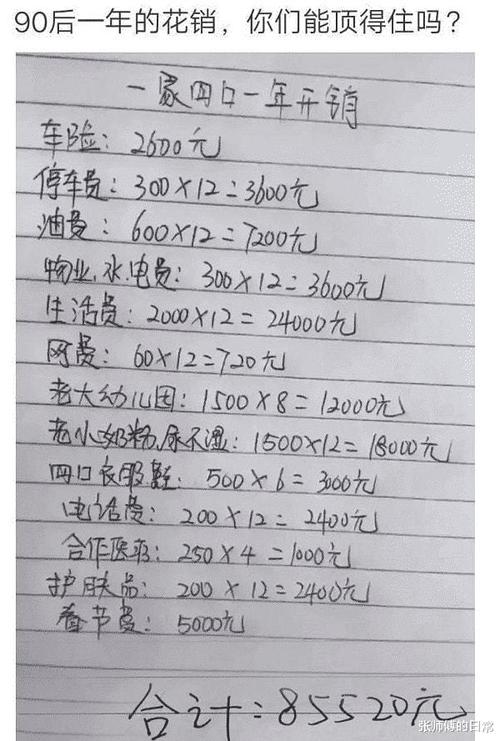 90后一年的花销，你们能顶得住吗？
一家四口一年开销
车险：2600元
停车费：300×12=3600元
油费：600×12=7200元
物业.水.电费：300×12=3600元
生活费：2000×12=24000元
网费：60×12=720元
老大幼儿园：1500×8=12000元
老小奶粉.尿不湿：1500×12=18000元
四口衣服鞋：500×6=3000元
电话费：200×12=2400元
合作医疗：250×4=1000元
护肤品：200×12=2400元
春节费：5000元
合计：85520元
张师傅的日常